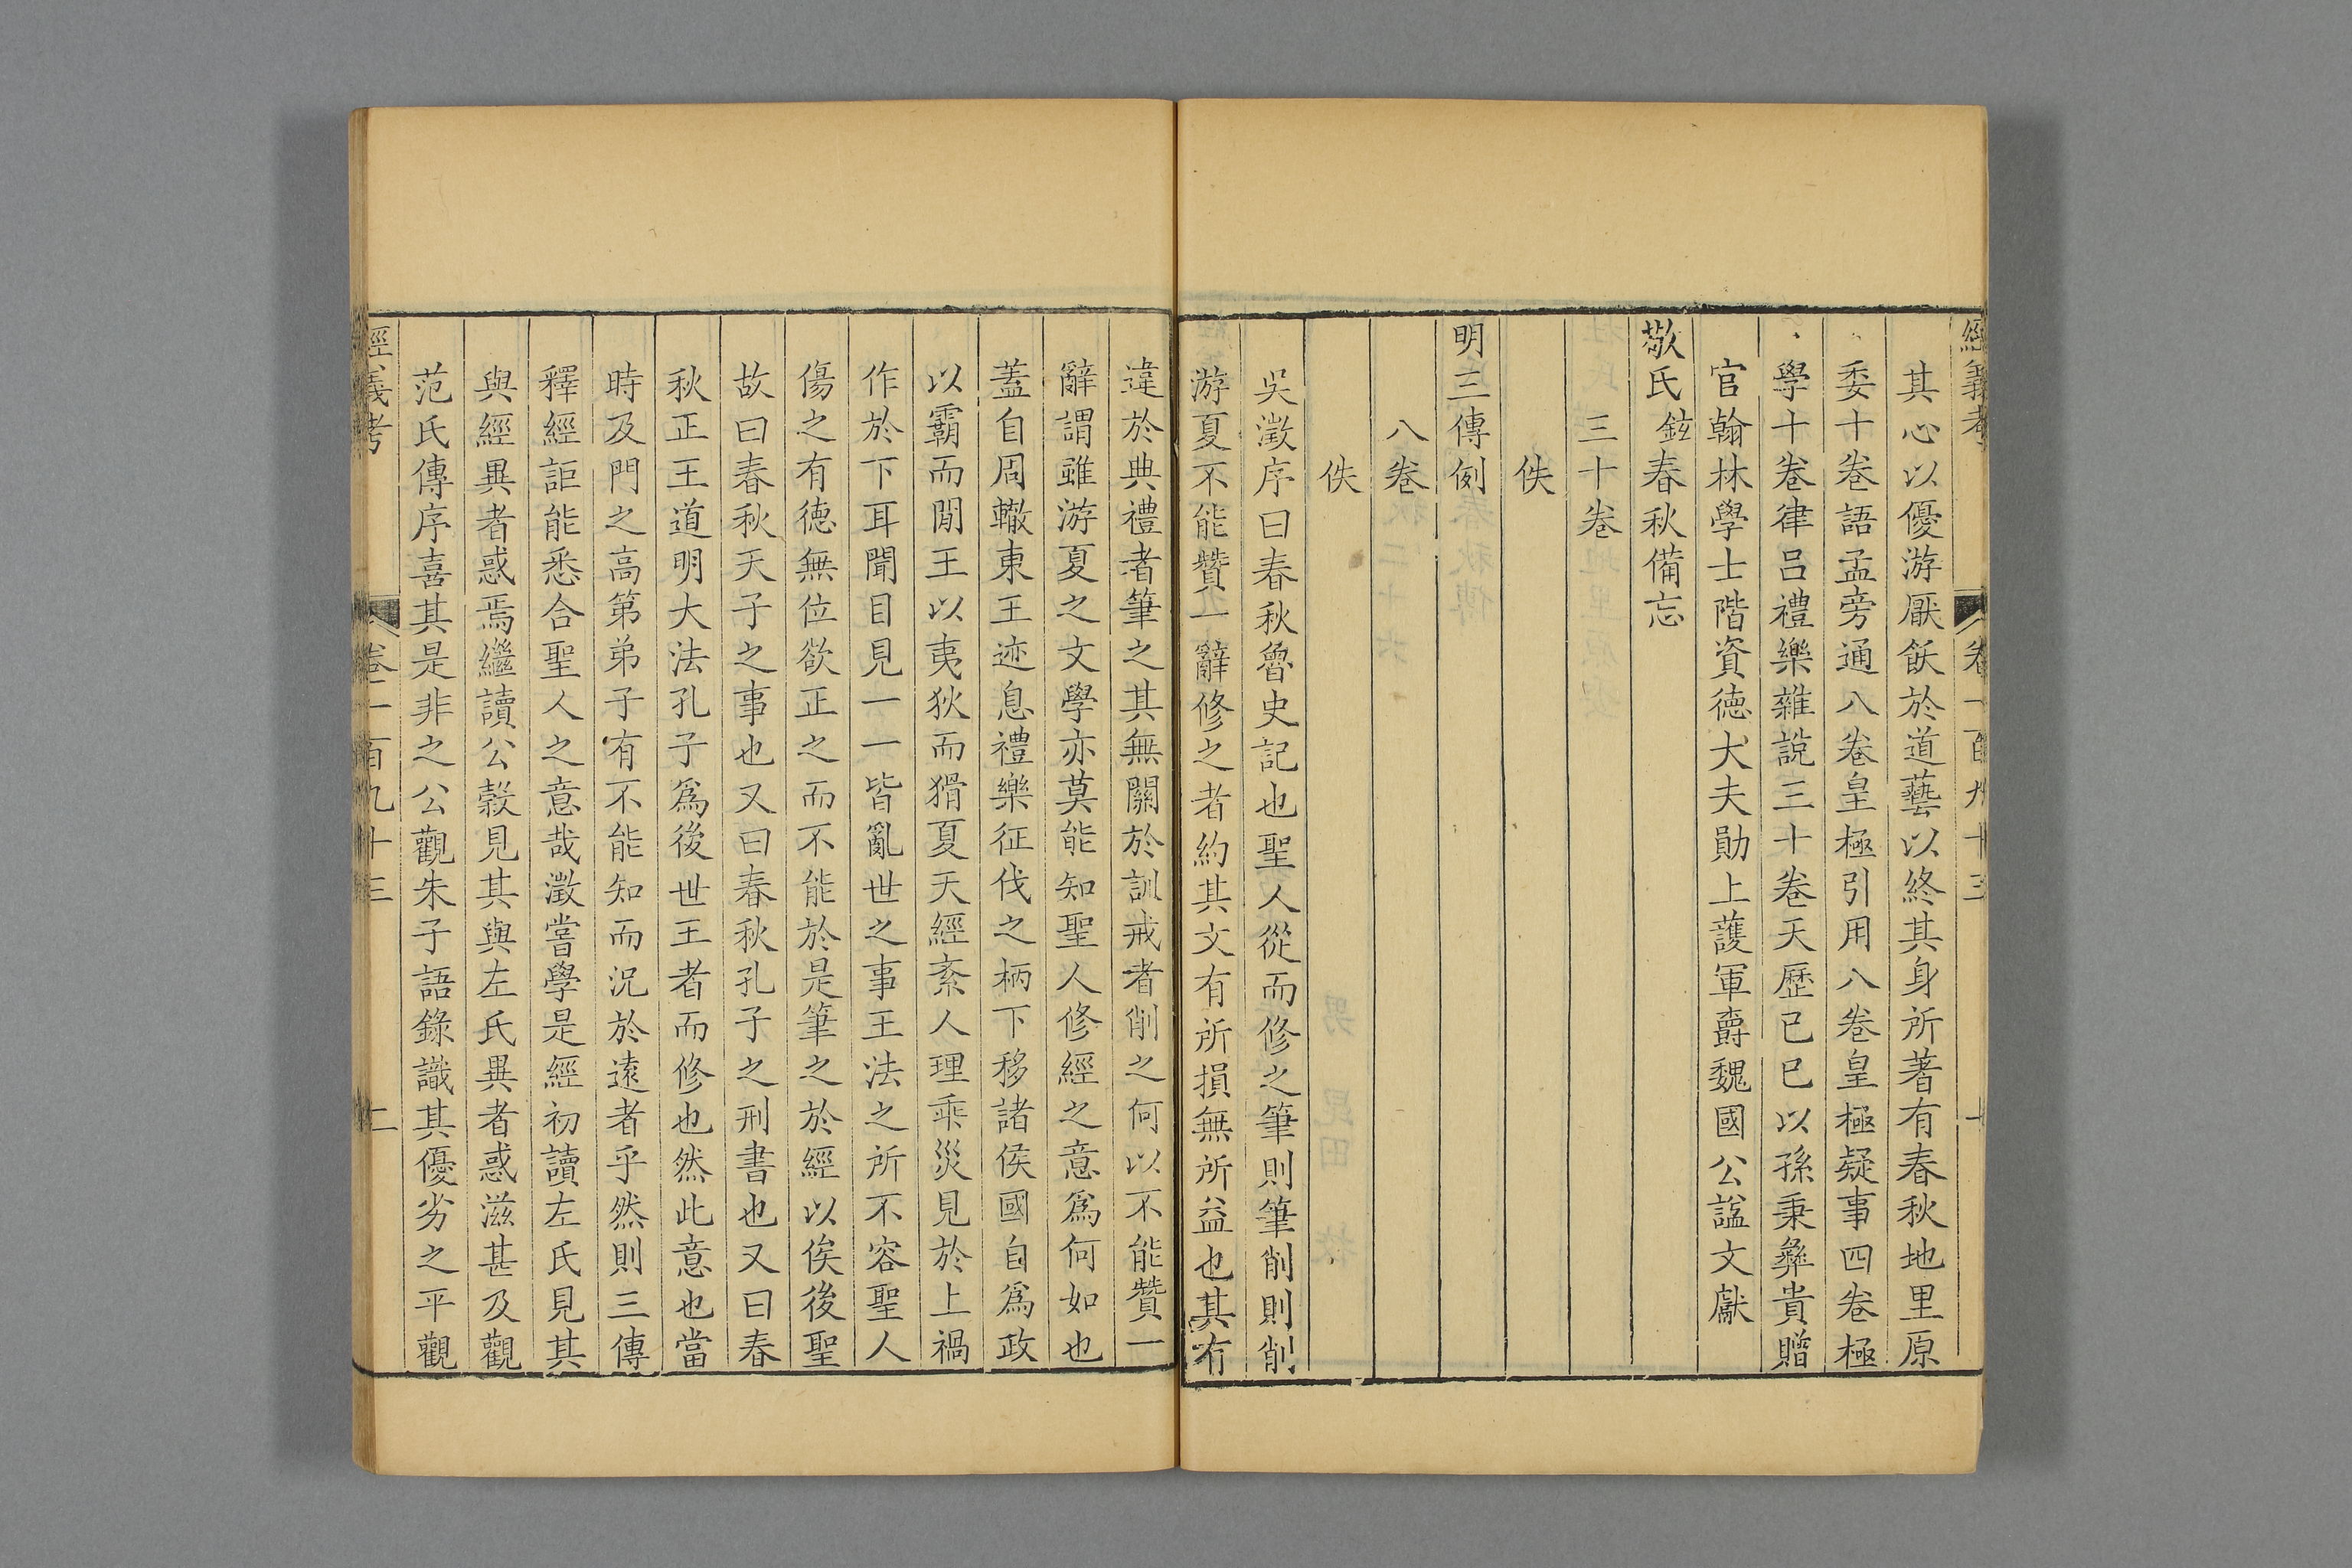 經義考 卷一百九十三 十
其心以優游厭飫於道藝以終其身所著有春秋地里原
委十卷語孟旁通八卷皇極引用八卷皇極疑事四卷極
學十卷律呂禮樂雜說三十卷天歷已巳以孫秉彝貴贈
官翰林學士階資德大夫勛上護軍爵魏國公諡文獻
敬氏鉉春秋備忘
三十卷
佚
明三傳例
八卷
佚
吳澂序曰春秋魯史記也聖人從而修之筆則筆削則削
游夏不能贊一辭修之者約其文有所損無所益也其有
違於典禮者筆之其無關於訓戒者削之何以不能贊一
辭謂雖游夏之文學亦莫能知聖人修經之意爲何如也
蓋自周轍東王迹息禮樂征伐之柄下移諸侯國自爲政
以霸而閒王以夷狄而猾夏天經紊人理乖災見於上禍
作於下耳聞目見一一皆亂世之事王法之所不容聖人
傷之有德無位欲正之而不能於是筆之於經以俟後聖
故曰春秋天子之事也又曰春秋孔子之刑書也又曰春
秋正王道明大法孔子爲後世王者而修也然此意也當
時及門之高第弟子有不能知而況於遠者乎然則三傳
釋經詎能悉合聖人之意哉澂嘗學是經初讀左氏見其
與經異者惑焉繼讀公穀見其與左氏異者惑滋甚及觀
范氏傳序喜其是非之公觀朱子語錄識其優劣之平觀
經義考 卷一百九十三